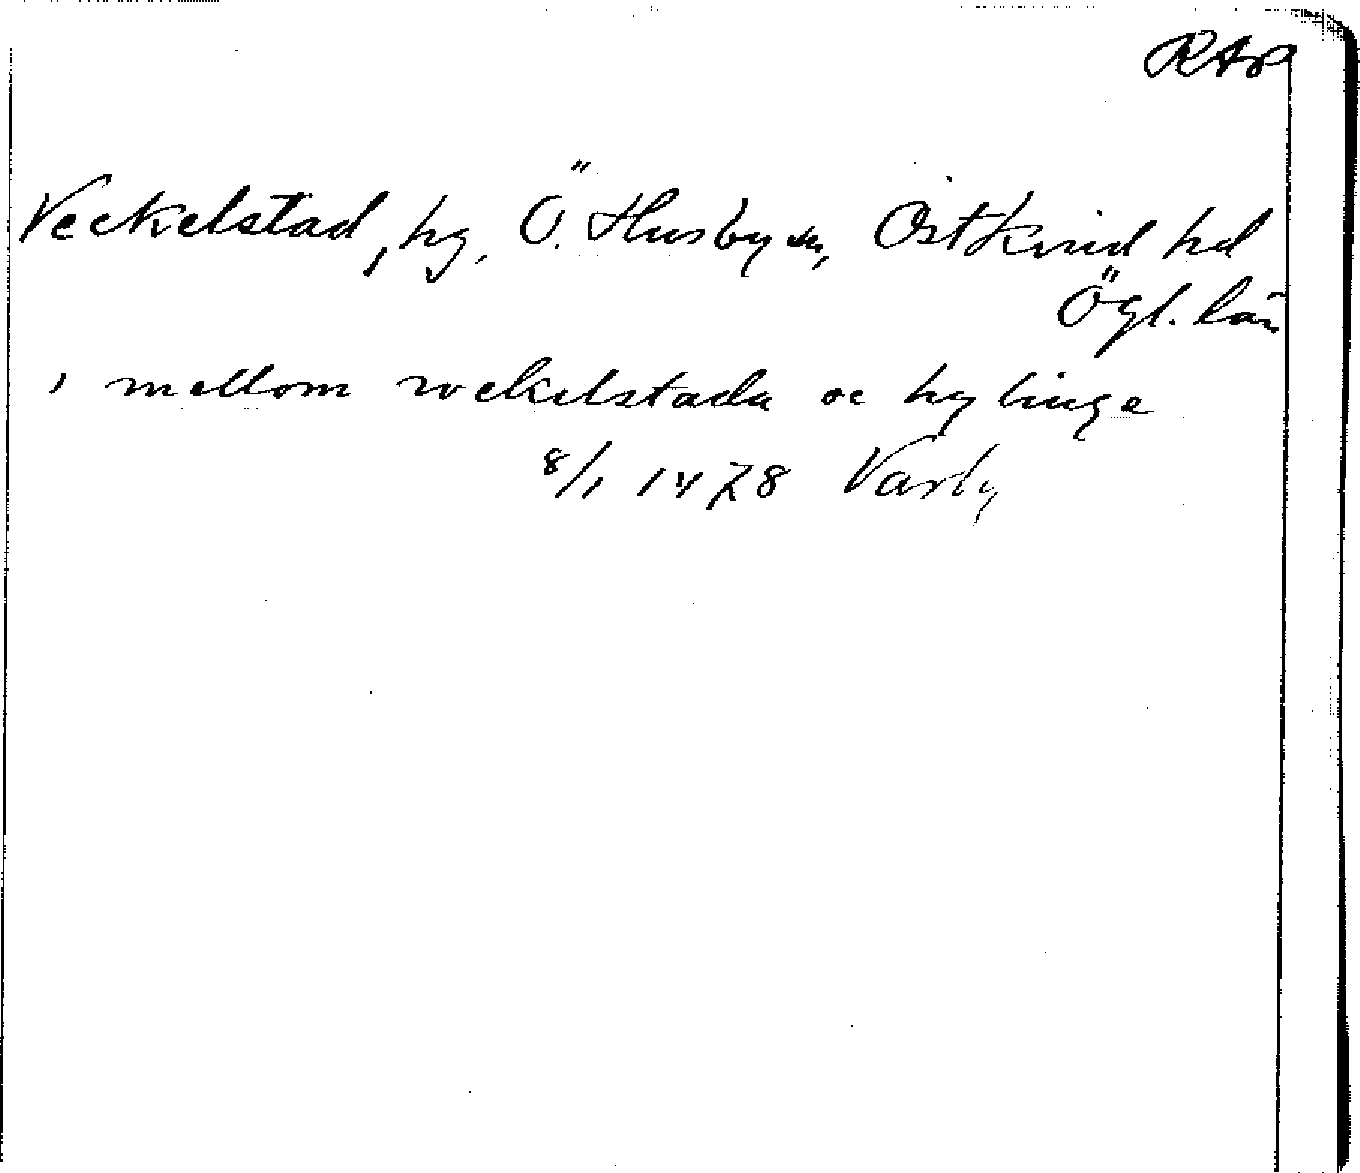 RAP
Veckelstad, hg, Ö. Husby sn, Östkind hd
Ögl. län
i mellom wekelstada oc hylinge
8/1 1478 Varby